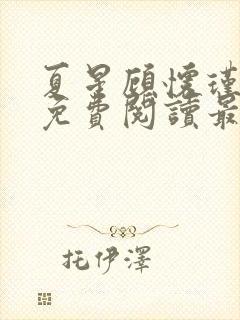 夏星顧懷瑾
免費閱讀最
托伊澤